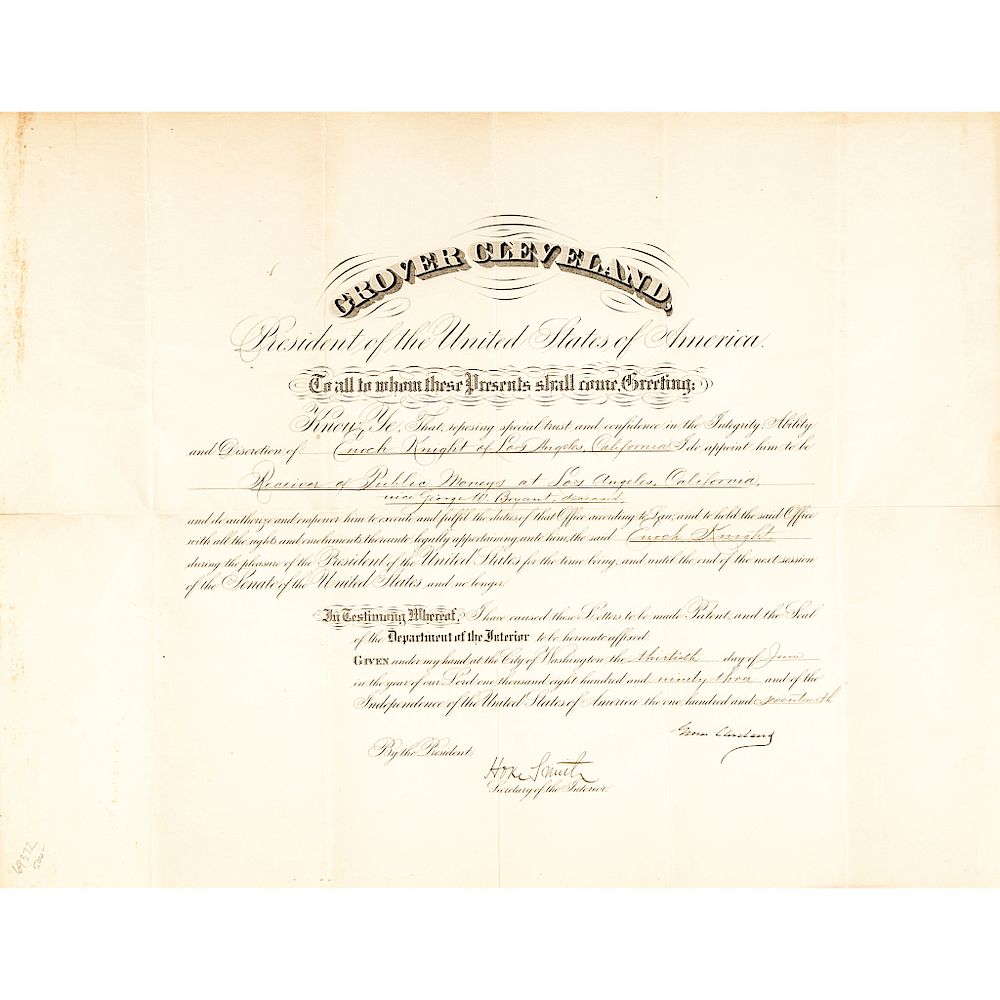 GROVER CLEVELAND,
President of the United States of America.
To all to whom these Presents shall come, Greeting:
Know Ye, That, reposing special trust and confidence in the Integrity, Ability
and Discretion of Enoch Knight of Los Angeles, California I do appoint him to be
Receiver of Public Moneys at Los Angeles, California,
vice George W. Bryant, deceased,
and do authorize and empower him to execute and fulfil the duties of that Office according to Law, and to hold the said Office
with all the rights and emoluments thereunto legally appertaining, unto him, the said Enoch Knight,
during the pleasure of the President of the United States for the time being, and until the end of the next session
of the Senate of the United States and no longer.
In Testimony Whereof, I have caused these Letters to be made Patent, and the Seal
of the Department of the Interior to be hereunto affixed.
GIVEN under my hand at the City of Washington the thirtieth day of June
in the year of our Lord one thousand eight hundred and ninety three and of the
Independence of the United States of America the one hundred and seventeenth
Grover Cleveland
By the President:
Hoke Smith
Secretary of the Interior.
69372
500-